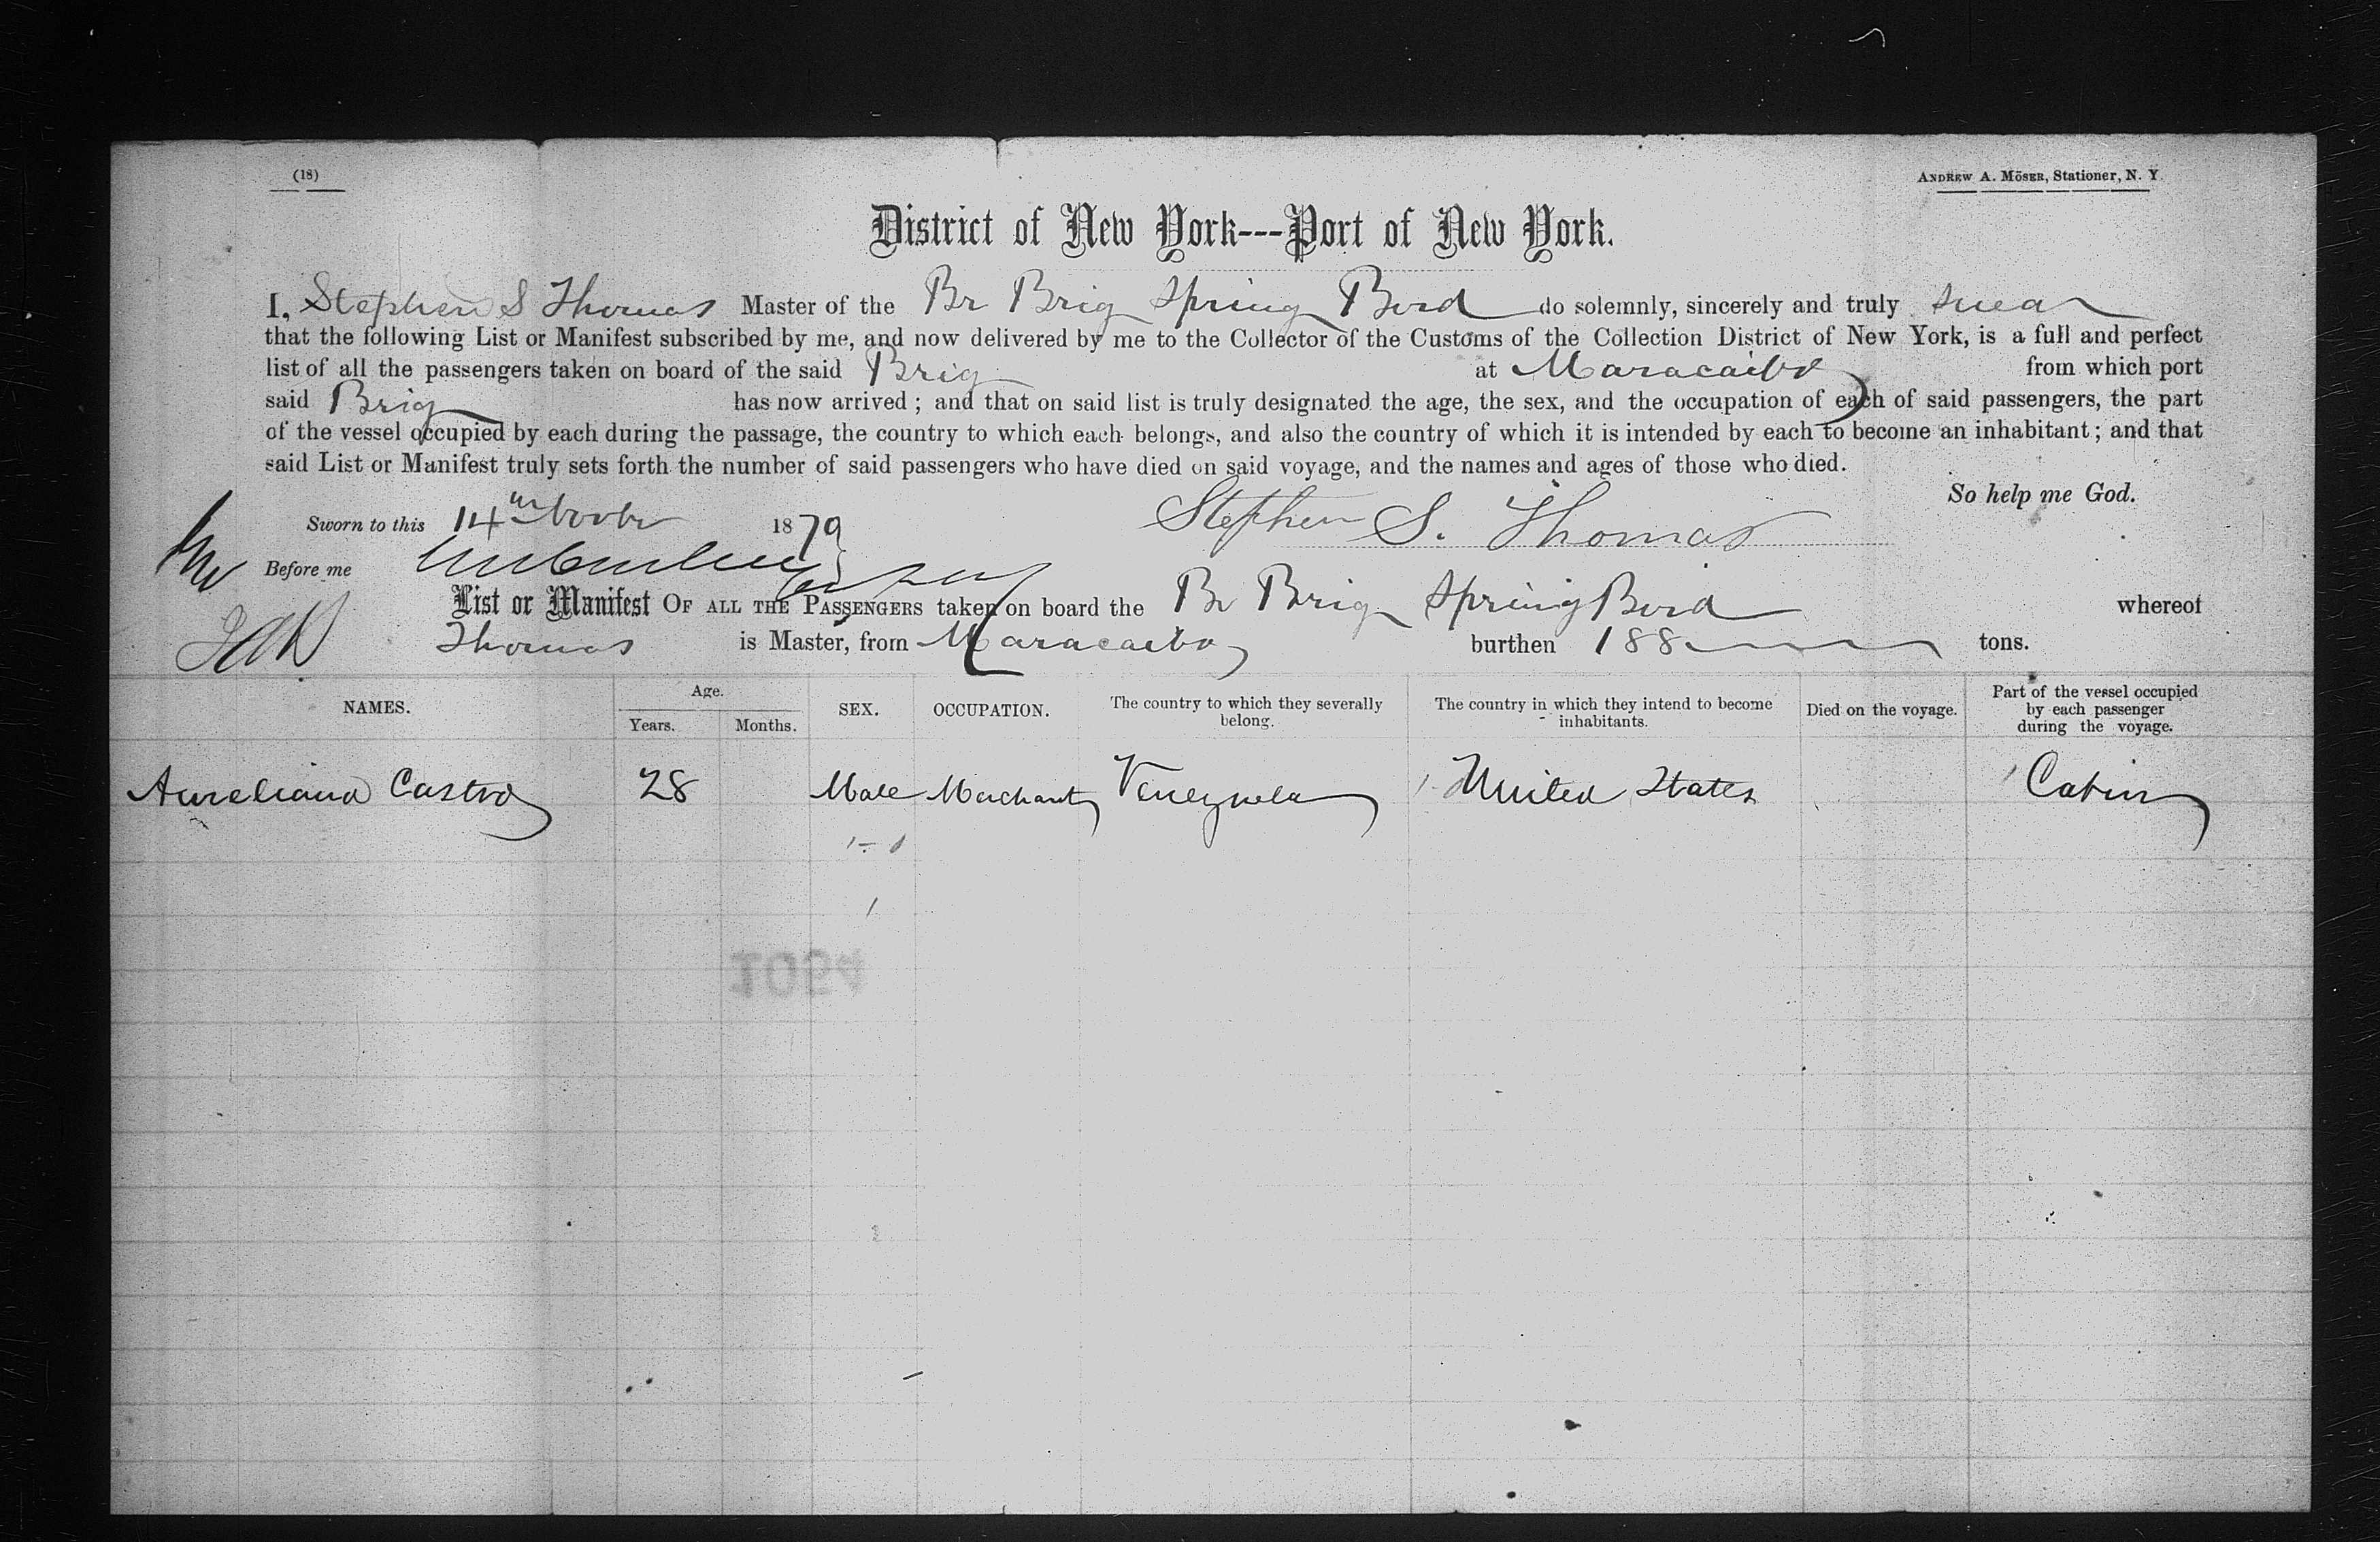 (18)
ANDREW A. MÖSER, Stationer, N. Y.
District of New York---Port of New York.
I, Stephen S Thomas Master of the Br Brig Spring Bird do solemnly, sincerely and truly swear
that the following List or Manifest subscribed by me, and now delivered by me to the Collector of the Customs of the Collection District of New York, is a full and perfect
list of all the passengers taken on board of the said Brig at Maracaibo from which port
said Brig has now arrived; and that on said list is truly designated the age, the sex, and the occupation of each of said passengers, the part
of the vessel occupied by each during the passage, the country to which each belongs, and also the country of which it is intended by each to become an inhabitant; and that
said List or Manifest truly sets forth the number of said passengers who have died on said voyage, and the names and ages of those who died.
So help me God.
Sworn to this 14th Novbr 1879 Stephen S. Thomas
Before me
List or Manifest OF ALL THE PASSENGERS taken on board the Br Brig Spring Bird whereof
Thomas is Master, from Maracaibo burthen 188 tons.
NAMES. Age. Years. Months. SEX. OCCUPATION. The country to which they severally belong. The country in which they intend to become inhabitants. Died on the voyage. Part of the vessel occupied by each passenger during the voyage.
Aureliano Castro 28 Male Merchant Venezuela United States Cabin
1054